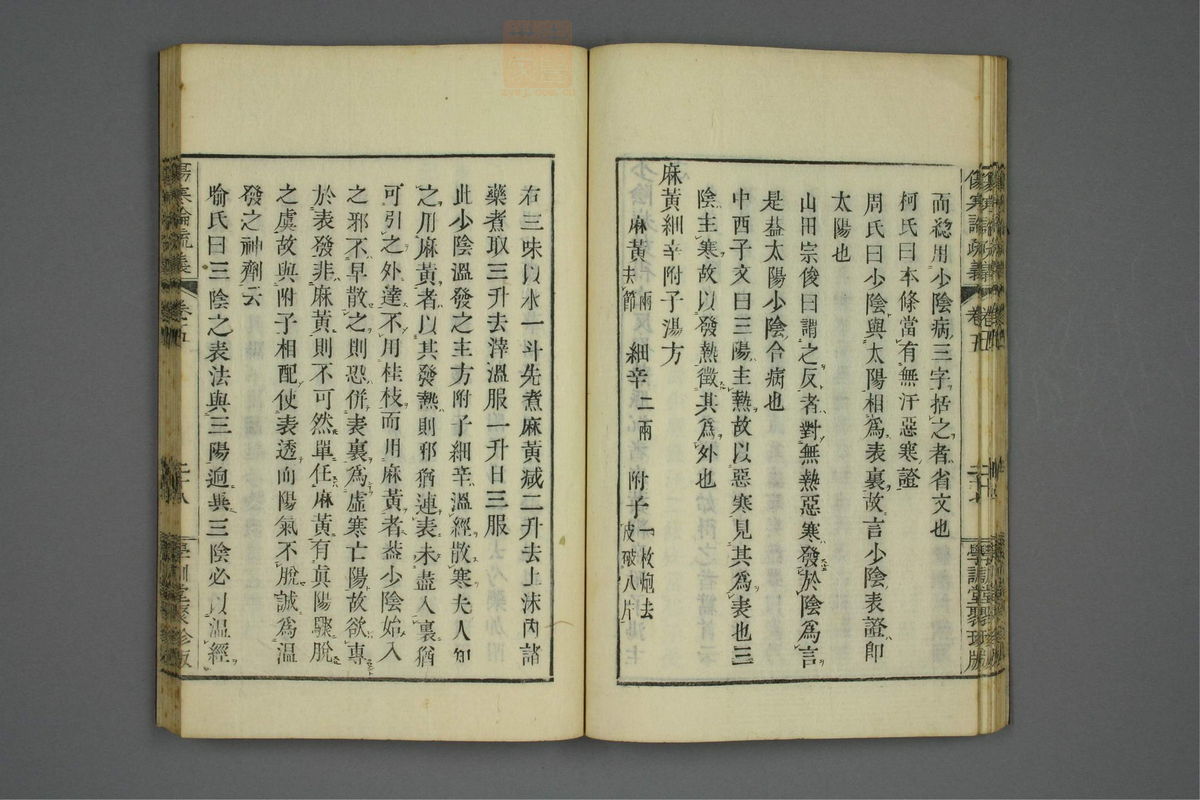 而發用少陰病三字括之者省文也
柯氏曰本條當有無汗惡寒證
周氏曰少陰與太陽相爲表裏故言少陰表證卽
太陽也
山田宗俊曰謂之反者對無熱惡寒發於陰爲言
是葢太陽少陰合病也
中西子文曰三陽主熱故以惡寒見其爲表也三
陰主寒故以發熱徵其爲外也
麻黃細辛附子湯方
麻黃 二兩去節 細辛 二兩 附子 一枚炮去皮破八片
右三味以水一斗先煮麻黃減二升去上沫內諸
藥煮取三升去滓溫服一升日三服
此少陰溫發之主方附子細辛溫經散寒夫人知
之用麻黃者以其發熱則邪猶連表未盡入裏猶
可引之外達不用桂枝而用麻黃者葢少陰始入
之邪不早散之則恐併表裏爲虛寒亡陽故欲專
於表發非麻黃則不可然單任麻黃有眞陽驟脫
之虞故與附子相配使表透而陽氣不脫誠爲溫
發之神劑云
喻氏曰三陰之表法與三陽迥異三陰必以溫經
傷寒論疏義 卷五 二十八 學訓堂聚珍版